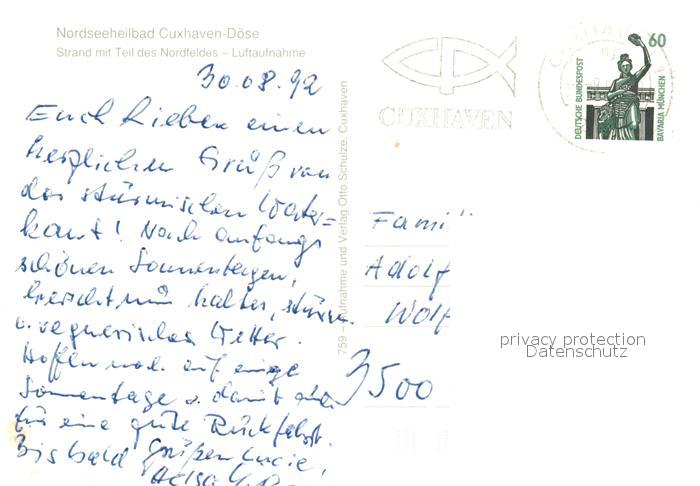 Nordseeheilbad Cuxhaven-Döse
Strand mit Teil des Nordfeldes – Luftaufnahme
30.08.92
Euch Lieben einen
herzlichen Gruß von
der stürmischen Water=
kant! Nach anfangs
schönen Sonnentagen,
herrscht nun kaltes, stürm.
u. regnerisches Wetter.
Hoffen noch auf einige
Sonnentage u. damit auch
für eine gute Rückfahrt.
Bis bald grüßen
759 – Luftaufnahme und Verlag Otto Schulze, Cuxhaven
CUXHAVEN
60
DEUTSCHE BUNDESPOST
BAVARIA MÜNCHEN
Fami
Adolf
Wolf
3500
privacy protection
Datenschutz